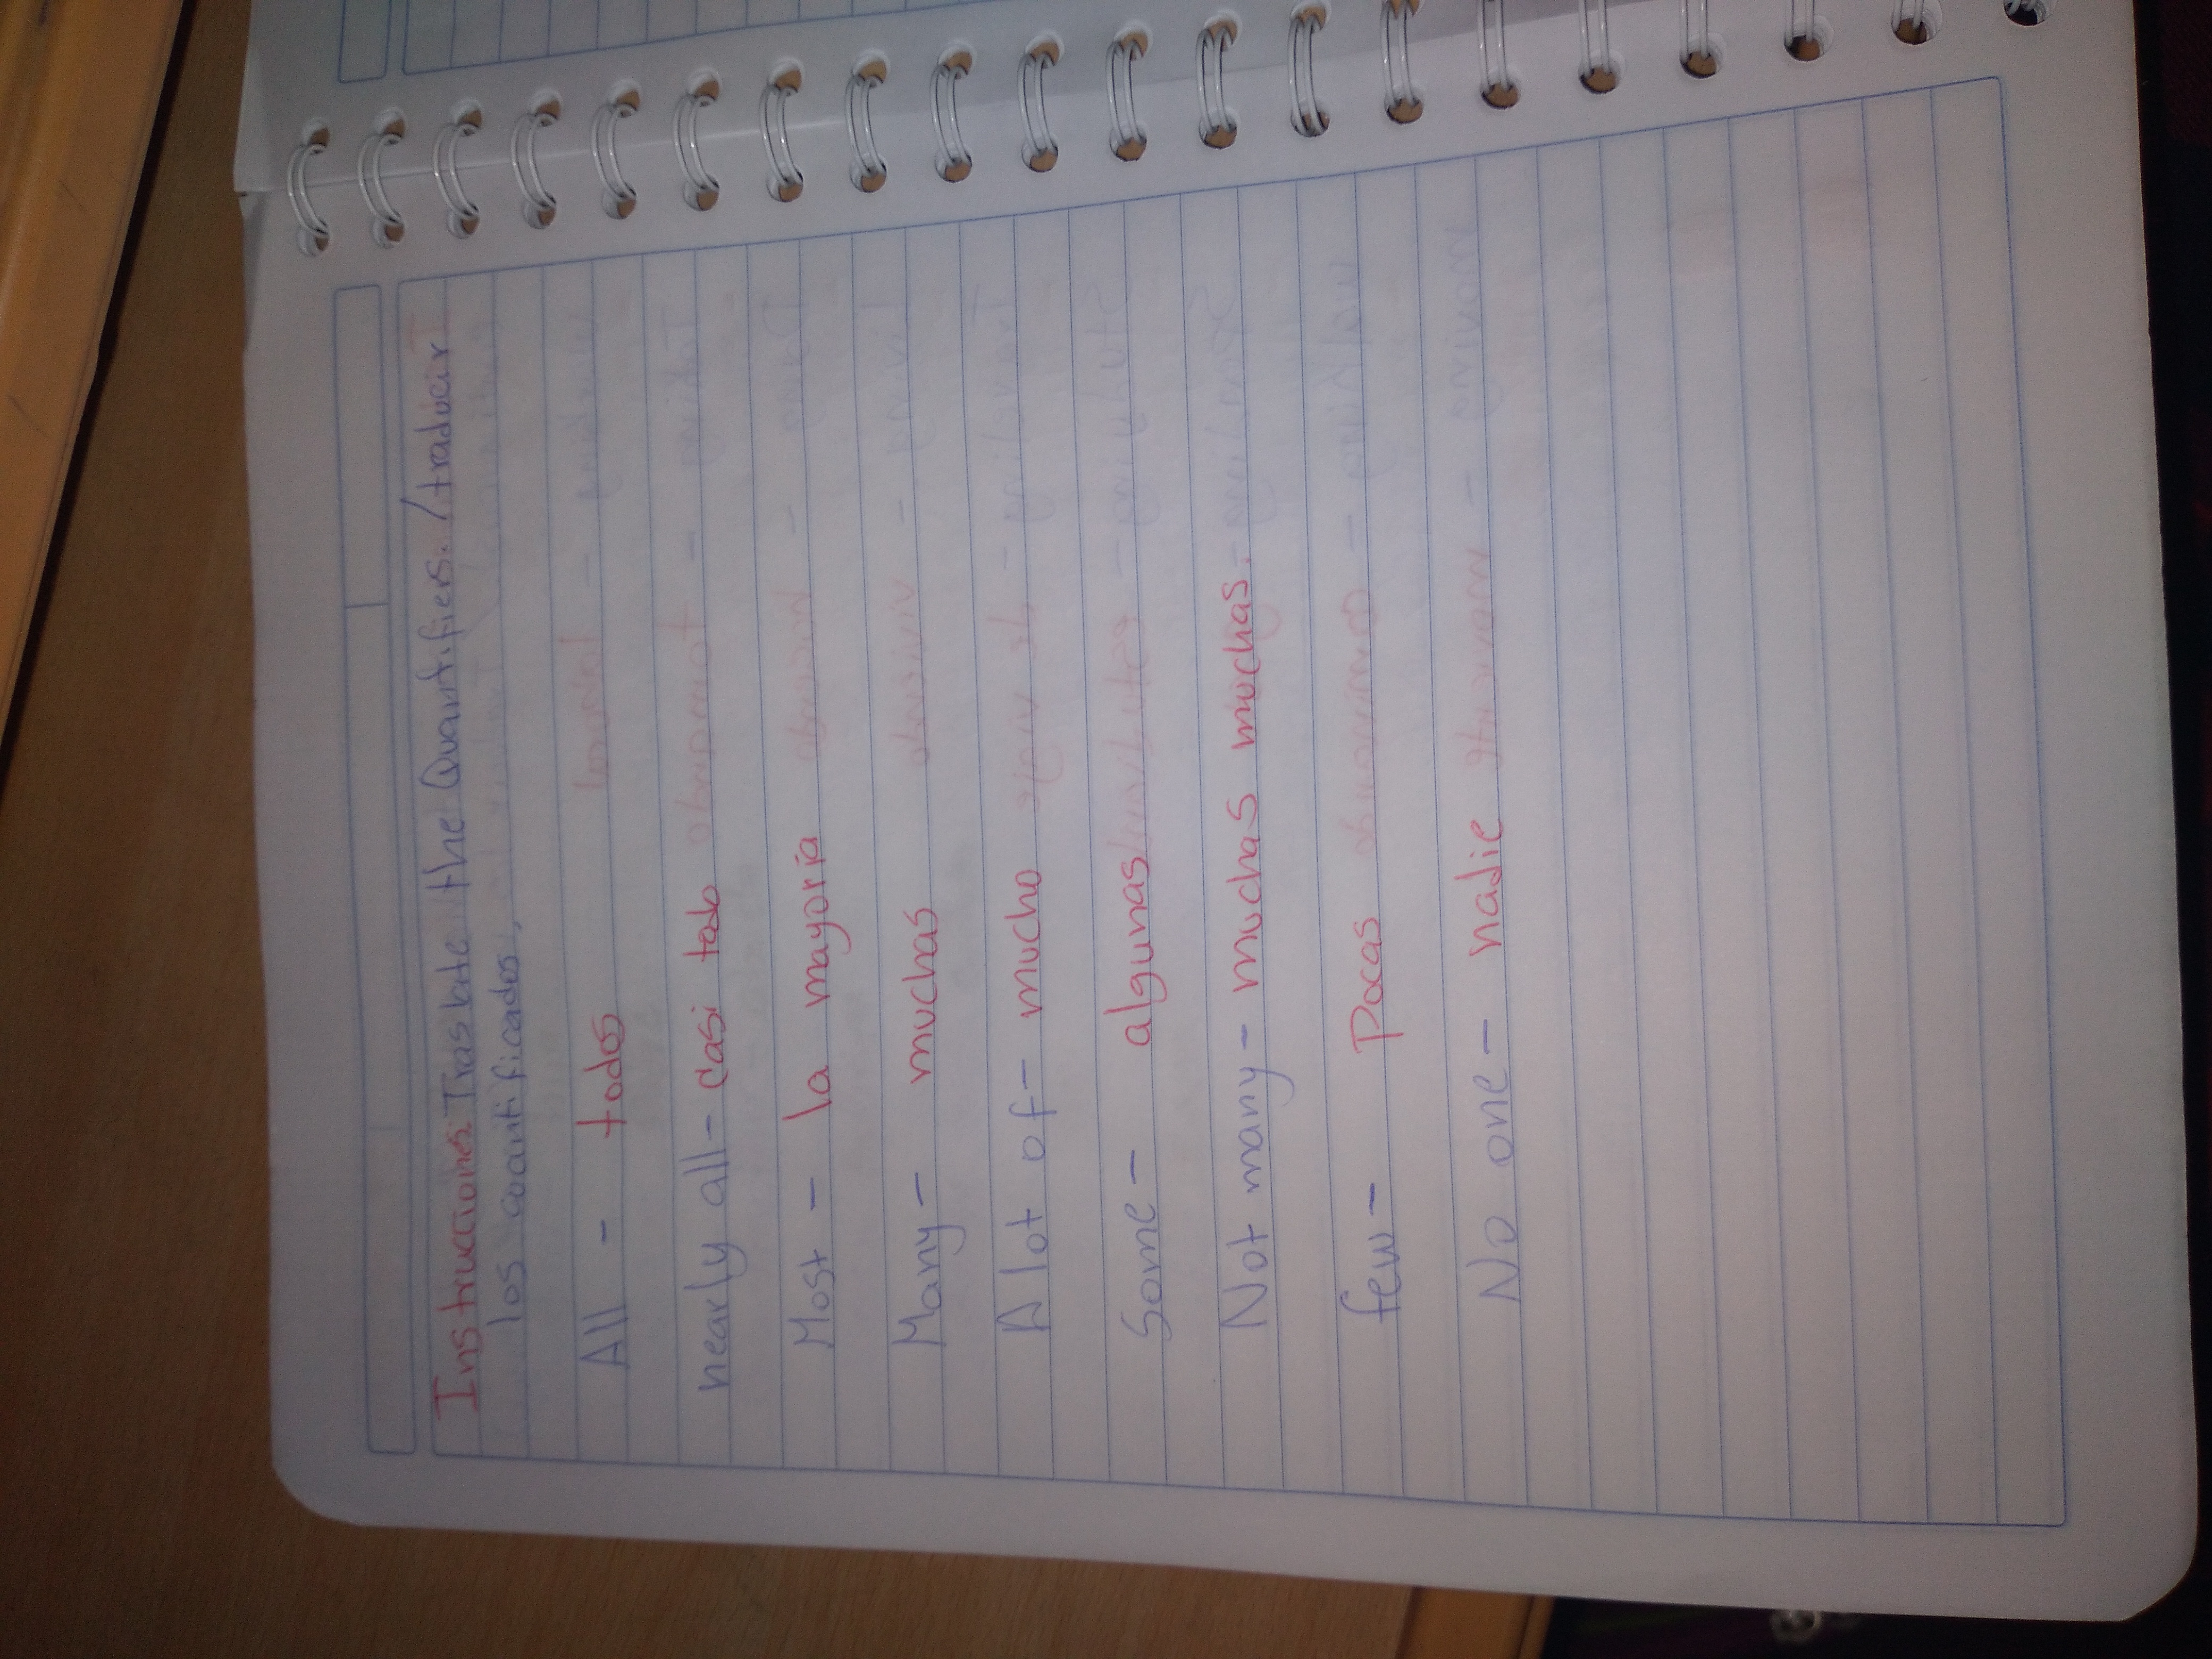 Instrucciones: Traslate the Quantifiers. / traducir
los coantificados.
All - todos
nearly all - casi todo
Most - la mayoría
Many - muchas
A lot of - mucho
Some - algunas
Not many - muchas muchas.
few - Pocas
No one - nadie